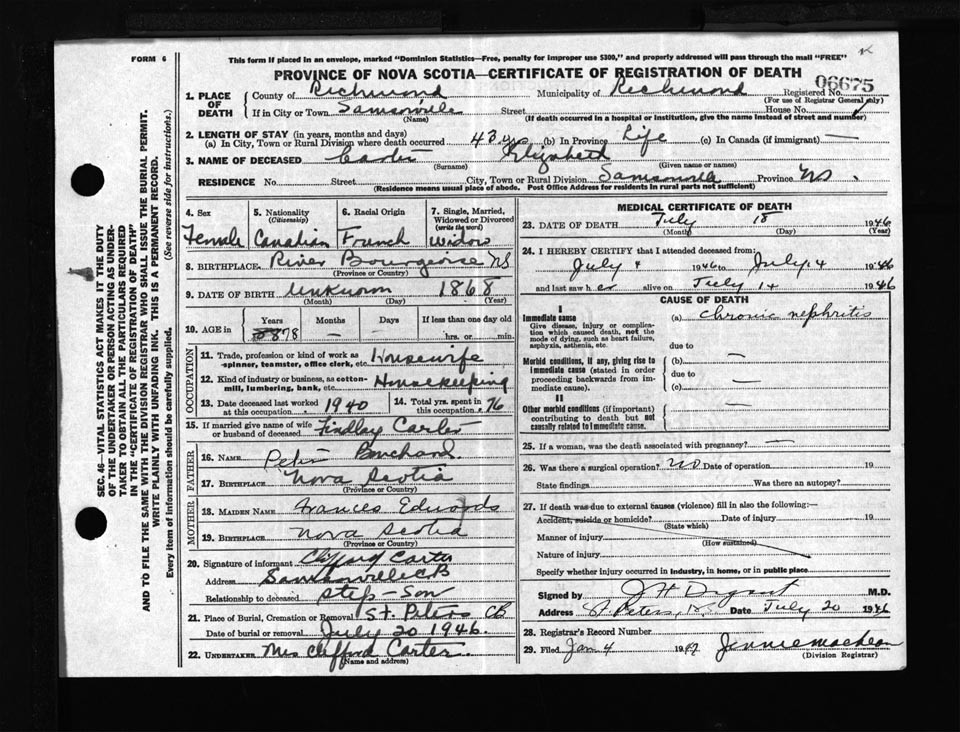 FORM 6
This form if placed in an envelope, marked "Dominion Statistics—Free, penalty for improper use $300," and properly addressed will pass through the mail "FREE"
PROVINCE OF NOVA SCOTIA—CERTIFICATE OF REGISTRATION OF DEATH
06675
1. PLACE OF DEATH
County of Richmond Municipality of Richmond Registered No.
(For use of Registrar General only)
If in City or Town Samsonville Street House No.
(Name) (If death occurred in a hospital or institution, give the name instead of street and number)
2. LENGTH OF STAY (in years, months and days)
(a) In City, Town or Rural Division where death occurred 43 yrs (b) In Province Life (c) In Canada (if immigrant) —
3. NAME OF DECEASED Carter Elizabeth
(Surname) (Given name or names)
RESIDENCE No. Street City, Town or Rural Division Samsonville Province NS.
(Residence means usual place of abode. Post Office Address for residents in rural parts not sufficient)
4. Sex Female
5. Nationality (Citizenship) Canadian
6. Racial Origin French
7. Single, Married, Widowed or Divorced (write the word) Widow
8. BIRTHPLACE River Bourgeoise NS
(Province or Country)
9. DATE OF BIRTH Unknown 1868
(Month) (Day) (Year)
10. AGE in Years Months Days If less than one day old
78 — hrs. or min.
OCCUPATION
11. Trade, profession or kind of work as spinner, teamster, office clerk, etc. Housewife
12. Kind of industry or business, as cotton-mill, lumbering, bank, etc. Housekeeping
13. Date deceased last worked at this occupation 1940
14. Total yrs. spent in this occupation 76
15. If married give name of wife or husband of deceased Findlay Carter
FATHER
16. NAME Peter Burchard
17. BIRTHPLACE Nova Scotia
(Province or Country)
MOTHER
18. MAIDEN NAME Frances Edwards
19. BIRTHPLACE Nova Scotia
(Province or Country)
20. Signature of informant Carter
Address Samsonville CB
Relationship to deceased Step-Son
21. Place of Burial, Cremation or Removal St. Peters CB
Date of burial or removal July 20 1946.
22. UNDERTAKER Mrs Clifford Carter
(Name and address)
MEDICAL CERTIFICATE OF DEATH
23. DATE OF DEATH July 18 1946
(Month) (Day) (Year)
24. I HEREBY CERTIFY that I attended deceased from:
July 4 1946 to July 14 1946
and last saw her alive on July 14 1946
CAUSE OF DEATH
I
Immediate cause
Give disease, injury or complication which caused death, not the mode of dying, such as heart failure, asphyxia, asthenia, etc.
(a) chronic nephritis
due to
Morbid conditions, if any, giving rise to immediate cause (stated in order proceeding backwards from immediate cause).
(b) —
due to
(c) —
II
Other morbid conditions (if important) contributing to death but not causally related to immediate cause. —
25. If a woman, was the death associated with pregnancy? —
26. Was there a surgical operation? NO Date of operation 19
State findings Was there an autopsy?
27. If death was due to external causes (violence) fill in also the following:—
Accident, suicide or homicide? Date of injury 19
(State which)
Manner of injury
(How sustained)
Nature of injury
Specify whether injury occurred in industry, in home, or in public place
Signed by M.D.
Address St Peters, Date July 20 1946
28. Registrar's Record Number
29. Filed Jan 4 1947 Jennie MacLean
(Division Registrar)
SEC. 46—VITAL STATISTICS ACT MAKES IT THE DUTY
OF THE UNDERTAKER OR PERSON ACTING AS UNDERTAKER TO OBTAIN ALL THE PARTICULARS REQUIRED
IN THE "CERTIFICATE OF REGISTRATION OF DEATH"
AND TO FILE THE SAME WITH THE DIVISION REGISTRAR WHO SHALL ISSUE THE BURIAL PERMIT.
WRITE PLAINLY WITH UNFADING INK. THIS IS A PERMANENT RECORD.
Every item of information should be carefully supplied. (See reverse side for instructions.)